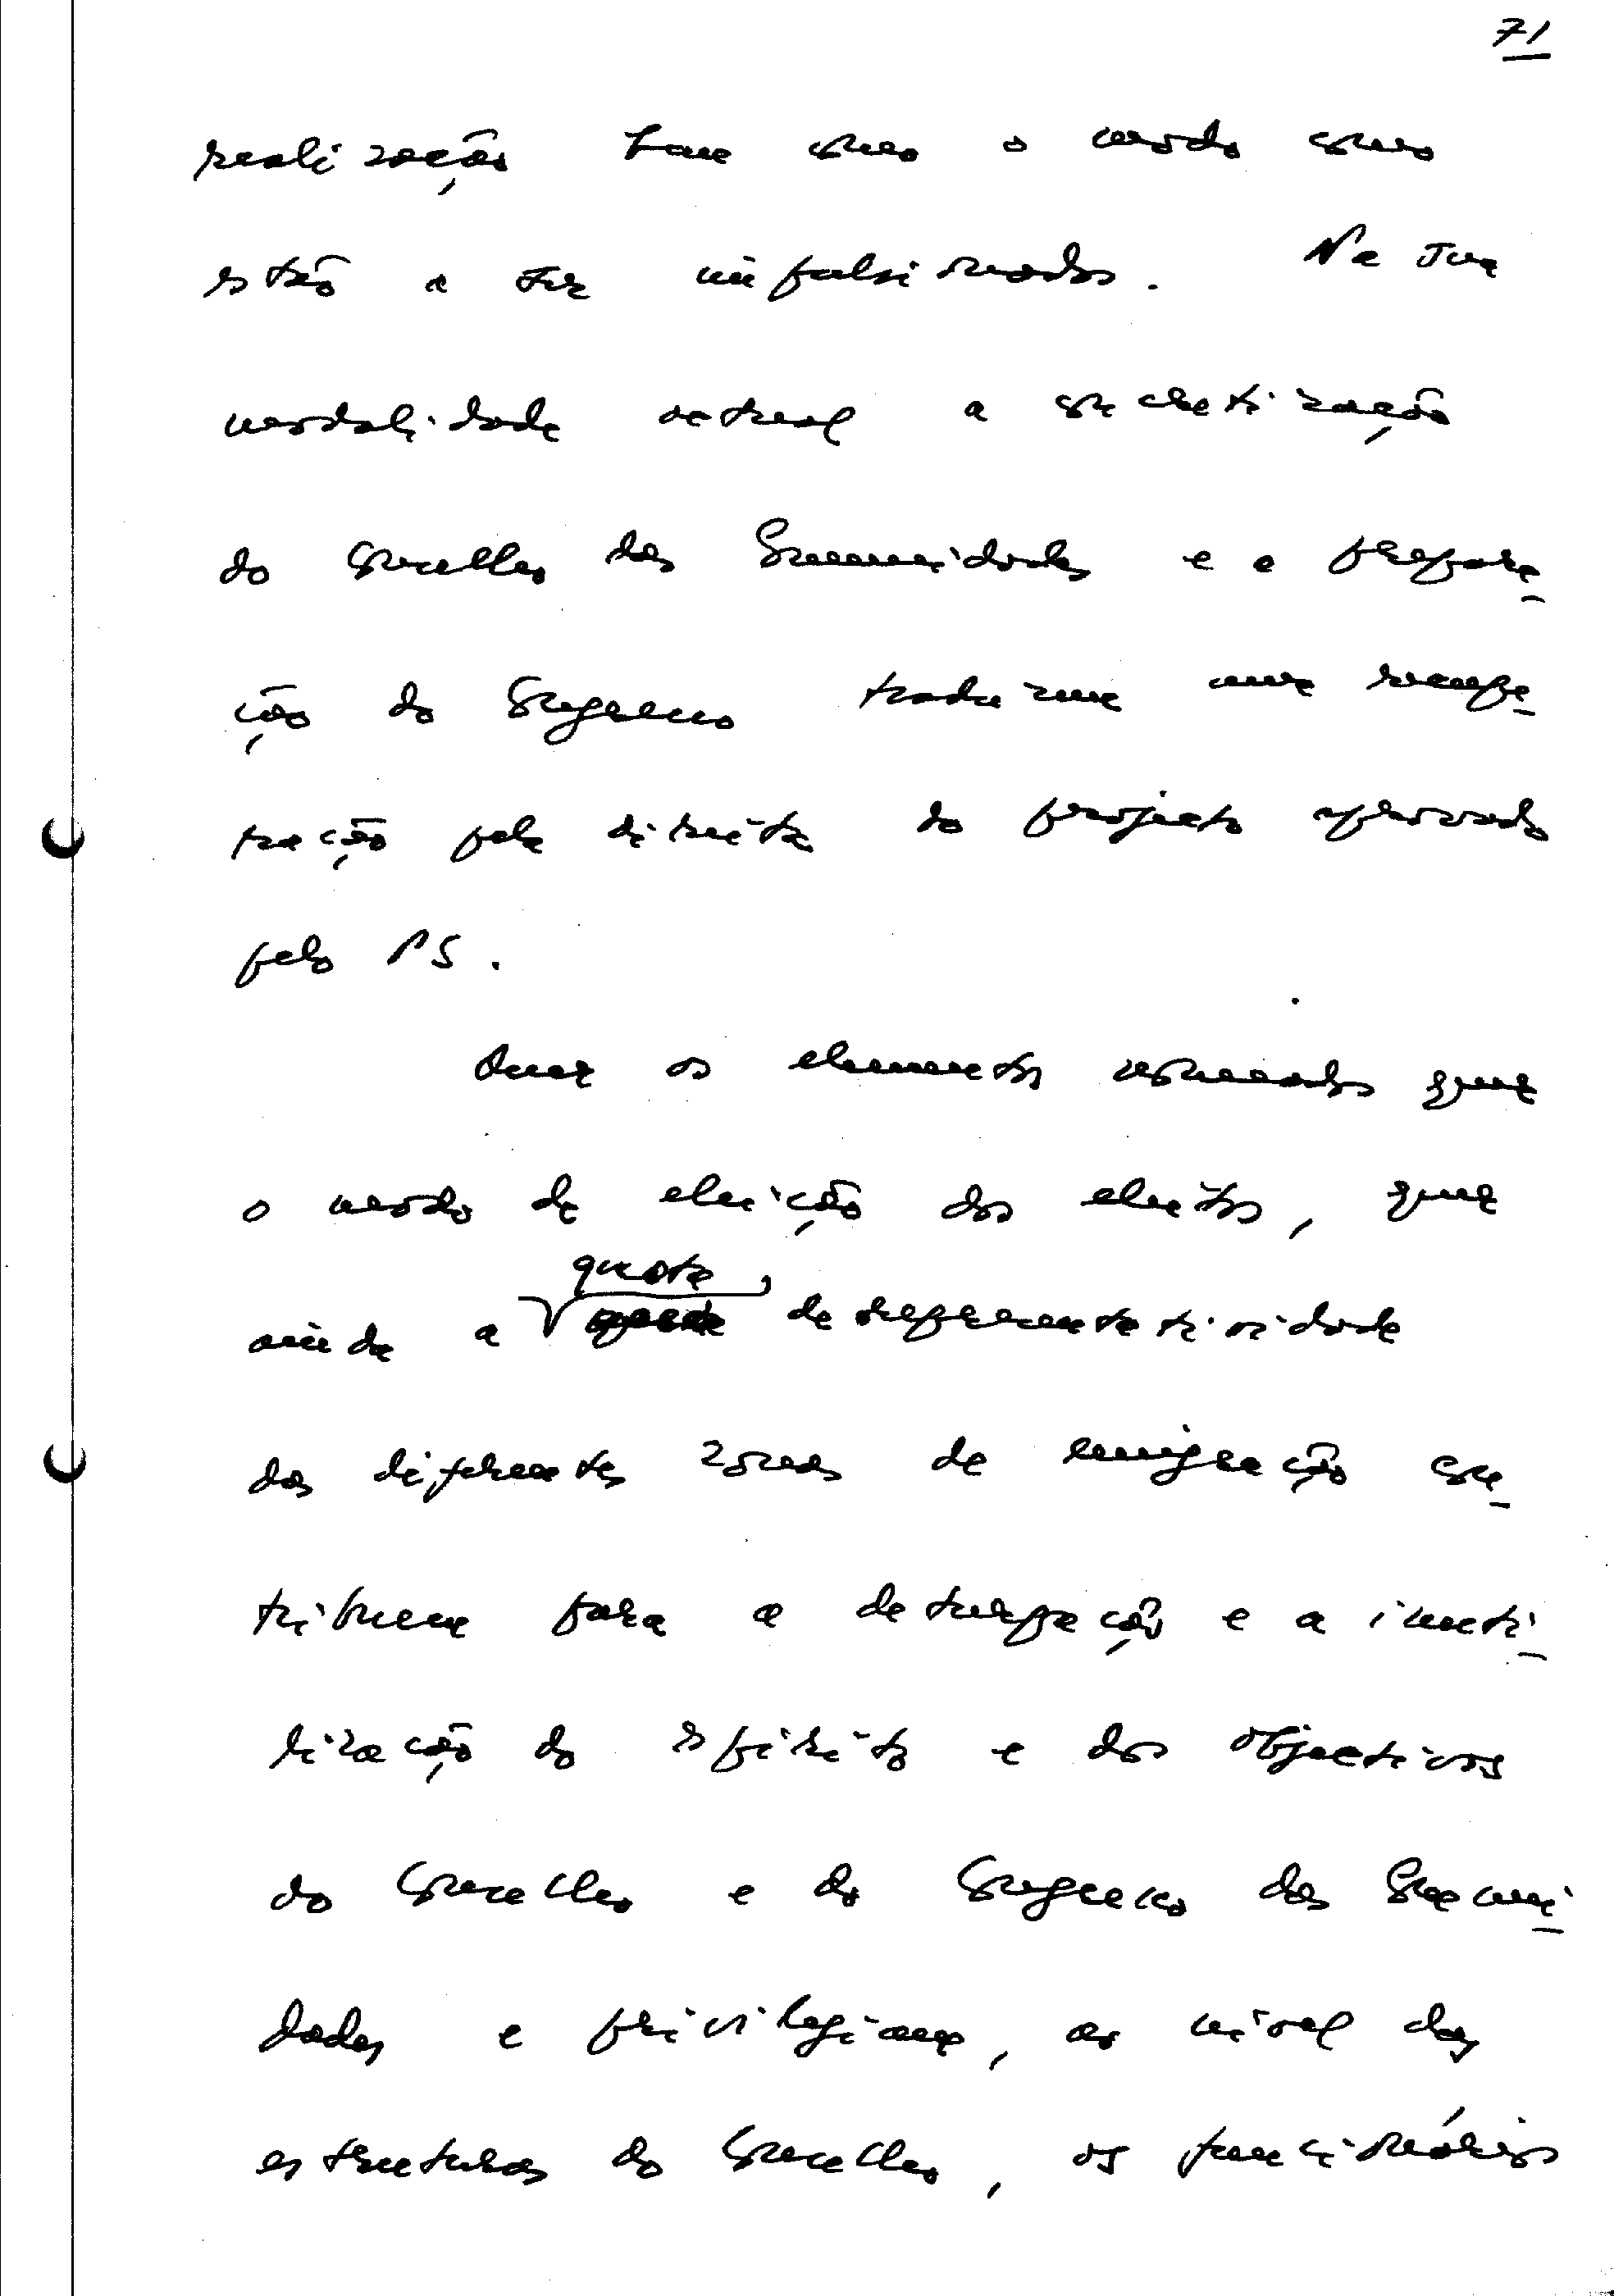 71
realização bem como o modo como
estão a ser impulsionados. Na sua
modalidade actual a concretização
do Conselho das Comunidades e a prepara-
ção do Congresso traduzem uma recupe-
ração pela direita do projecto aprovado
pelo PS.
Quer os elementos nomeados quer
o modo de eleição dos eleitos, quer
ainda a quota de representatividade
das diferentes zonas de emigração con-
tribuem para a deturpação e a inuti-
lização do espírito e dos objectivos
do Conselho e do Congresso das Comuni-
dades e privilegiam, ao nível das
estruturas do Conselho, os funcionários